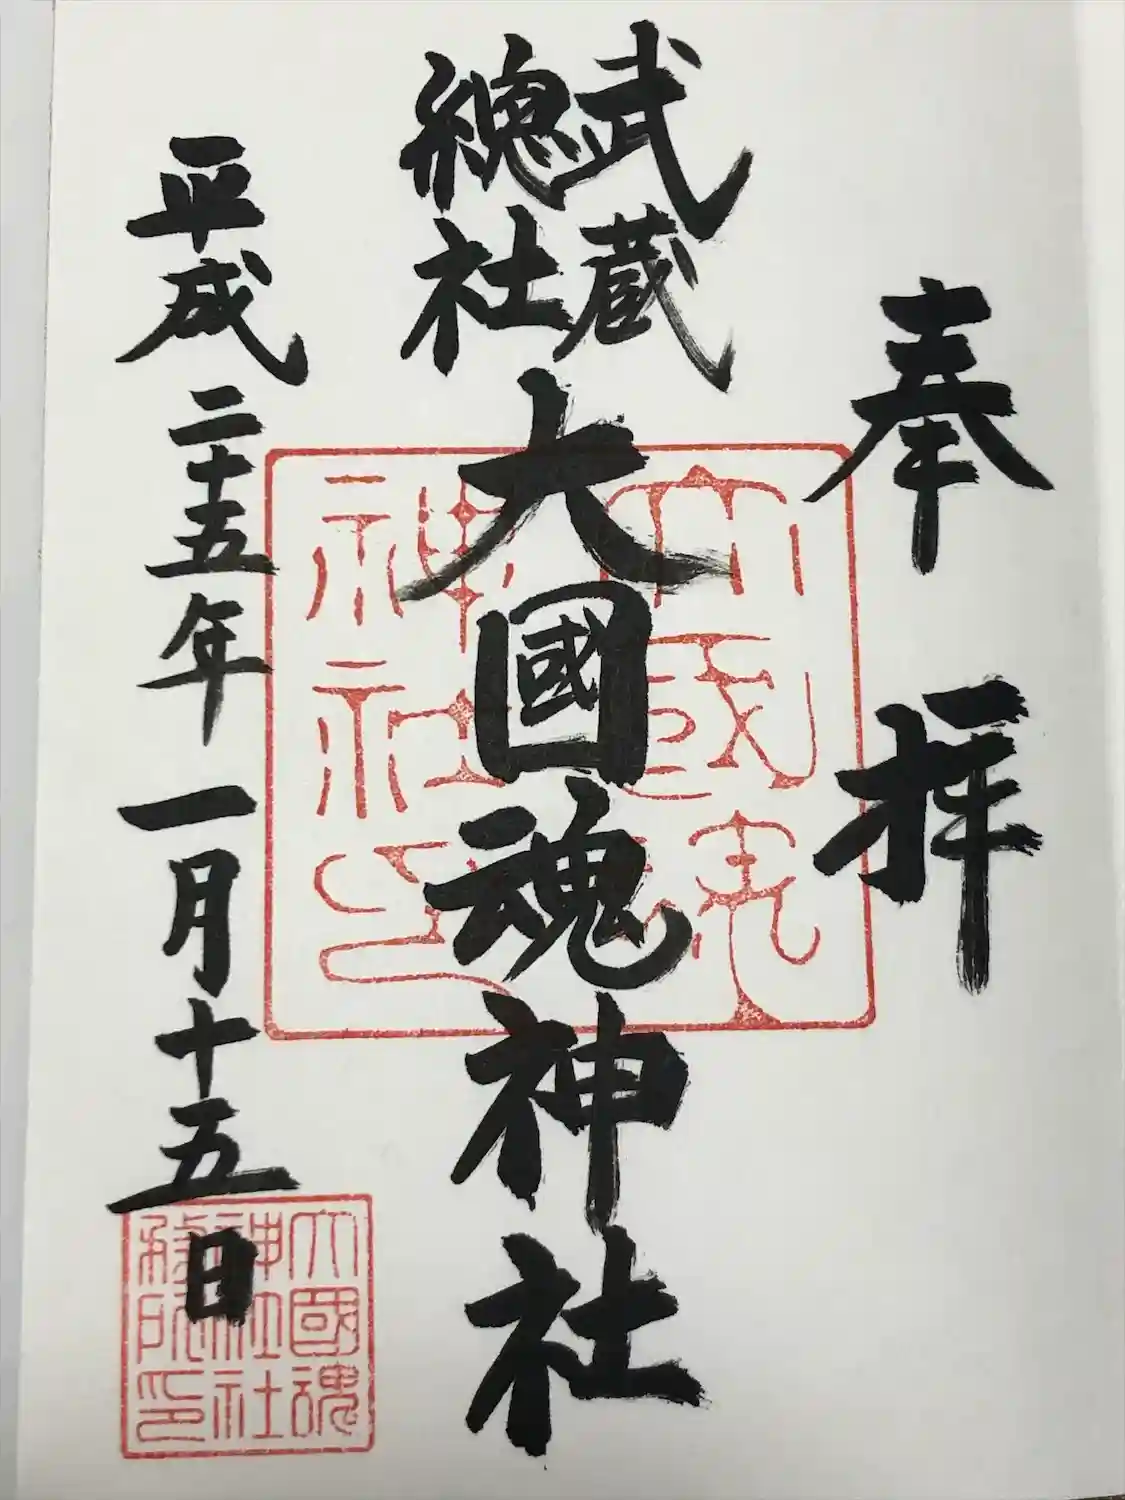 奉拝
武蔵
總社
大國魂神社
平成二十五年一月十五日
大國魂
神社
大國魂
神社社
務所印